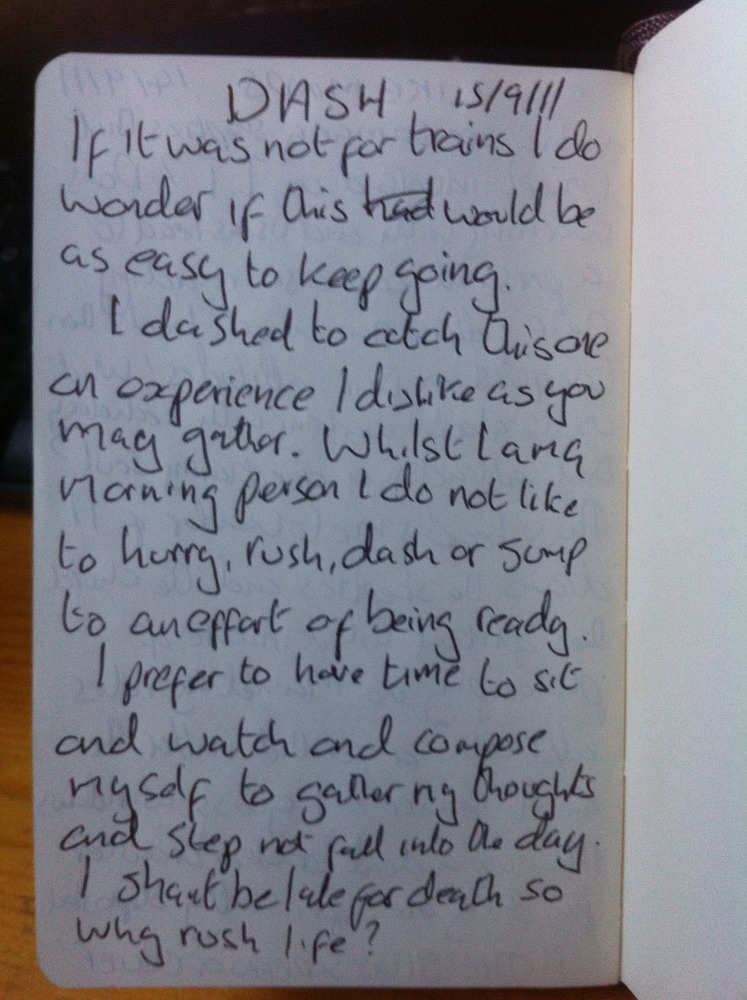 DASH 15/9/11
If it was not for trains I do
wonder if this had would be
as easy to keep going.
I dashed to catch this one
an experience I dislike as you
may gather. Whilst I am a
morning person I do not like
to hurry, rush, dash or jump
to an effort of being ready.
I prefer to have time to sit
and watch and compose
myself to gather my thoughts
and step not fall into the day.
I shant be late for death so
why rush life?